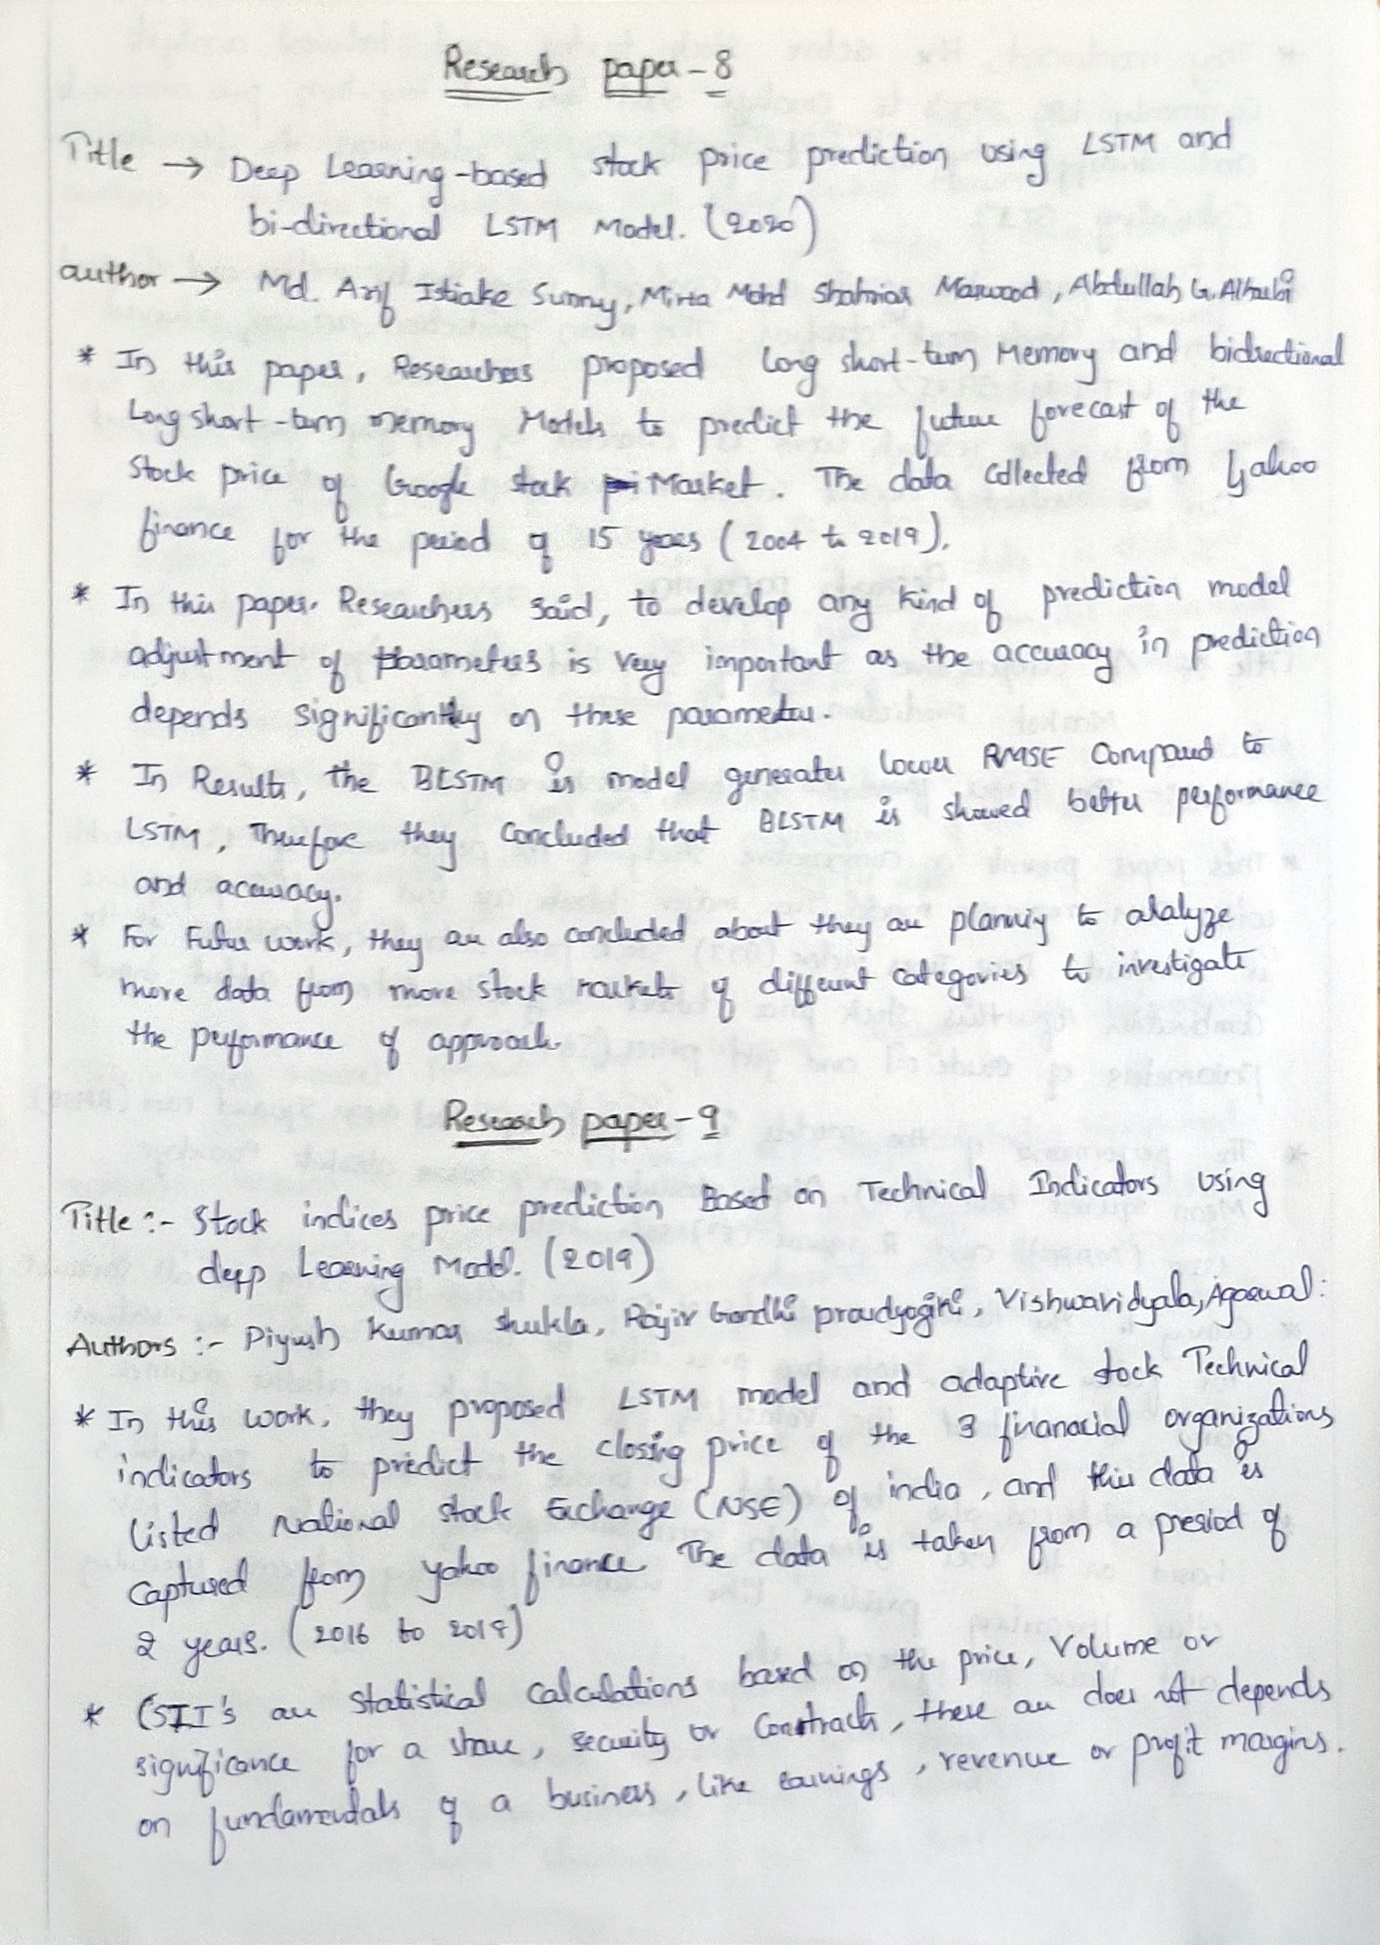 Research paper - 8
Title → Deep Learning-based stock price prediction using LSTM and
bi-directional LSTM Model. (2020)
author → Md. Arif Istiake Sunny, Mirza Mohd Shahriar Maswood, Abdullah G. Alharbi
* In this paper, Researchers proposed Long short-term Memory and bidirectional
Long short-term memory Models to predict the future forecast of the
Stock price of Google stock Market. The data collected from Yahoo
finance for the period of 15 years (2004 to 2019).
* In this paper. Researchers said, to develop any kind of prediction model
adjustment of parameters is very important as the accuracy in prediction
depends significantly on these parameters.
* In Results, the BLSTM is model generates lower RMSE Compared to
LSTM, Therefore they concluded that BLSTM is showed better performance
and accuracy.
* For Future work, they are also concluded about they are planning to analyze
more data from more stock markets of different categories to investigate
the performance of approach.
Research paper - 9
Title :- Stock indices price prediction Based on Technical Indicators using
deep Learning Model. (2019)
Authors :- Piyush Kumar Shukla, Rajiv Gandhi proudyogiki, Vishwavidyala, Agarwal:
* In this work, they proposed LSTM model and adaptive stock Technical
indicators to predict the closing price of the 3 finanacial organizations
Listed National stock Exchange (NSE) of india, and this data is
captured from yahoo finance. The data is taken from a presiod of
2 years. (2016 to 2018)
* (STI's are statistical calculations based on the price, Volume or
significance for a share, security or Constracts, these are does not depends
on fundamentals of a business, like earnings, revenue or profit margins.